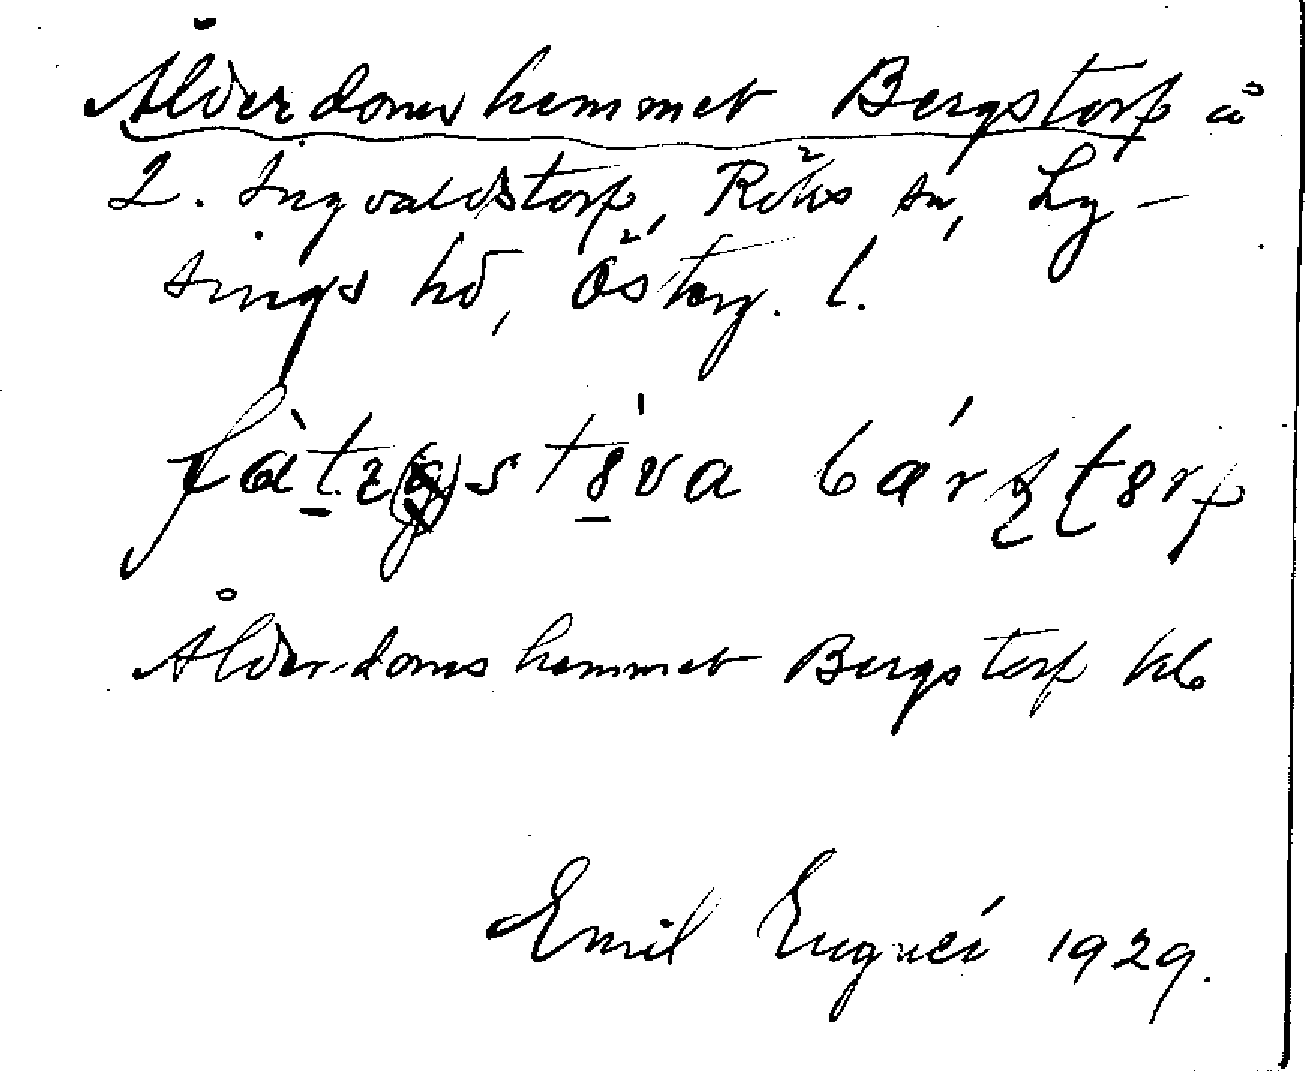 Ålderdomshemmet Bergstorp å
2. Ingvaldstorp, Röks sn, Ly-
sings hd, Österg. l.
fàtɩgstúva bárʂʈorp
Ålderdomshemmet Bergstorp kb
Emil 1929.